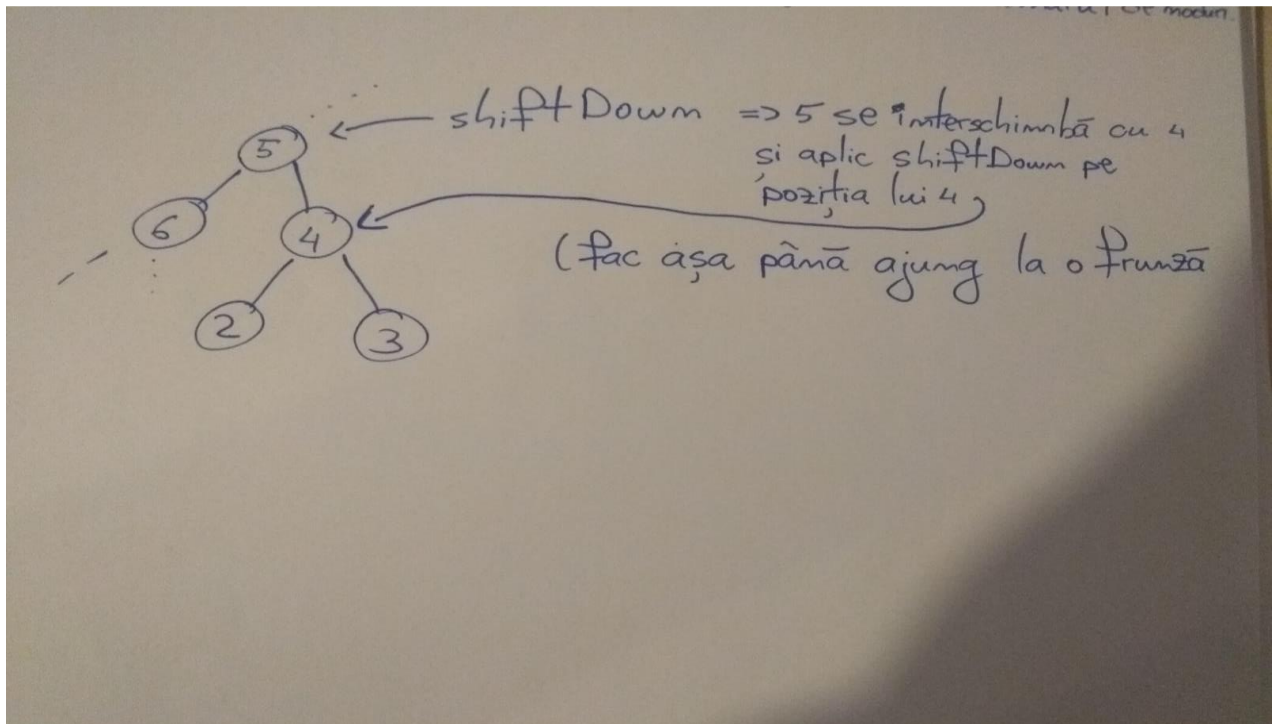 de noduri.
shiftDown => 5 se interschimbă cu 4
și aplic shiftDown pe
poziția lui 4
(fac așa până ajung la o frunză
5
6
4
2
3